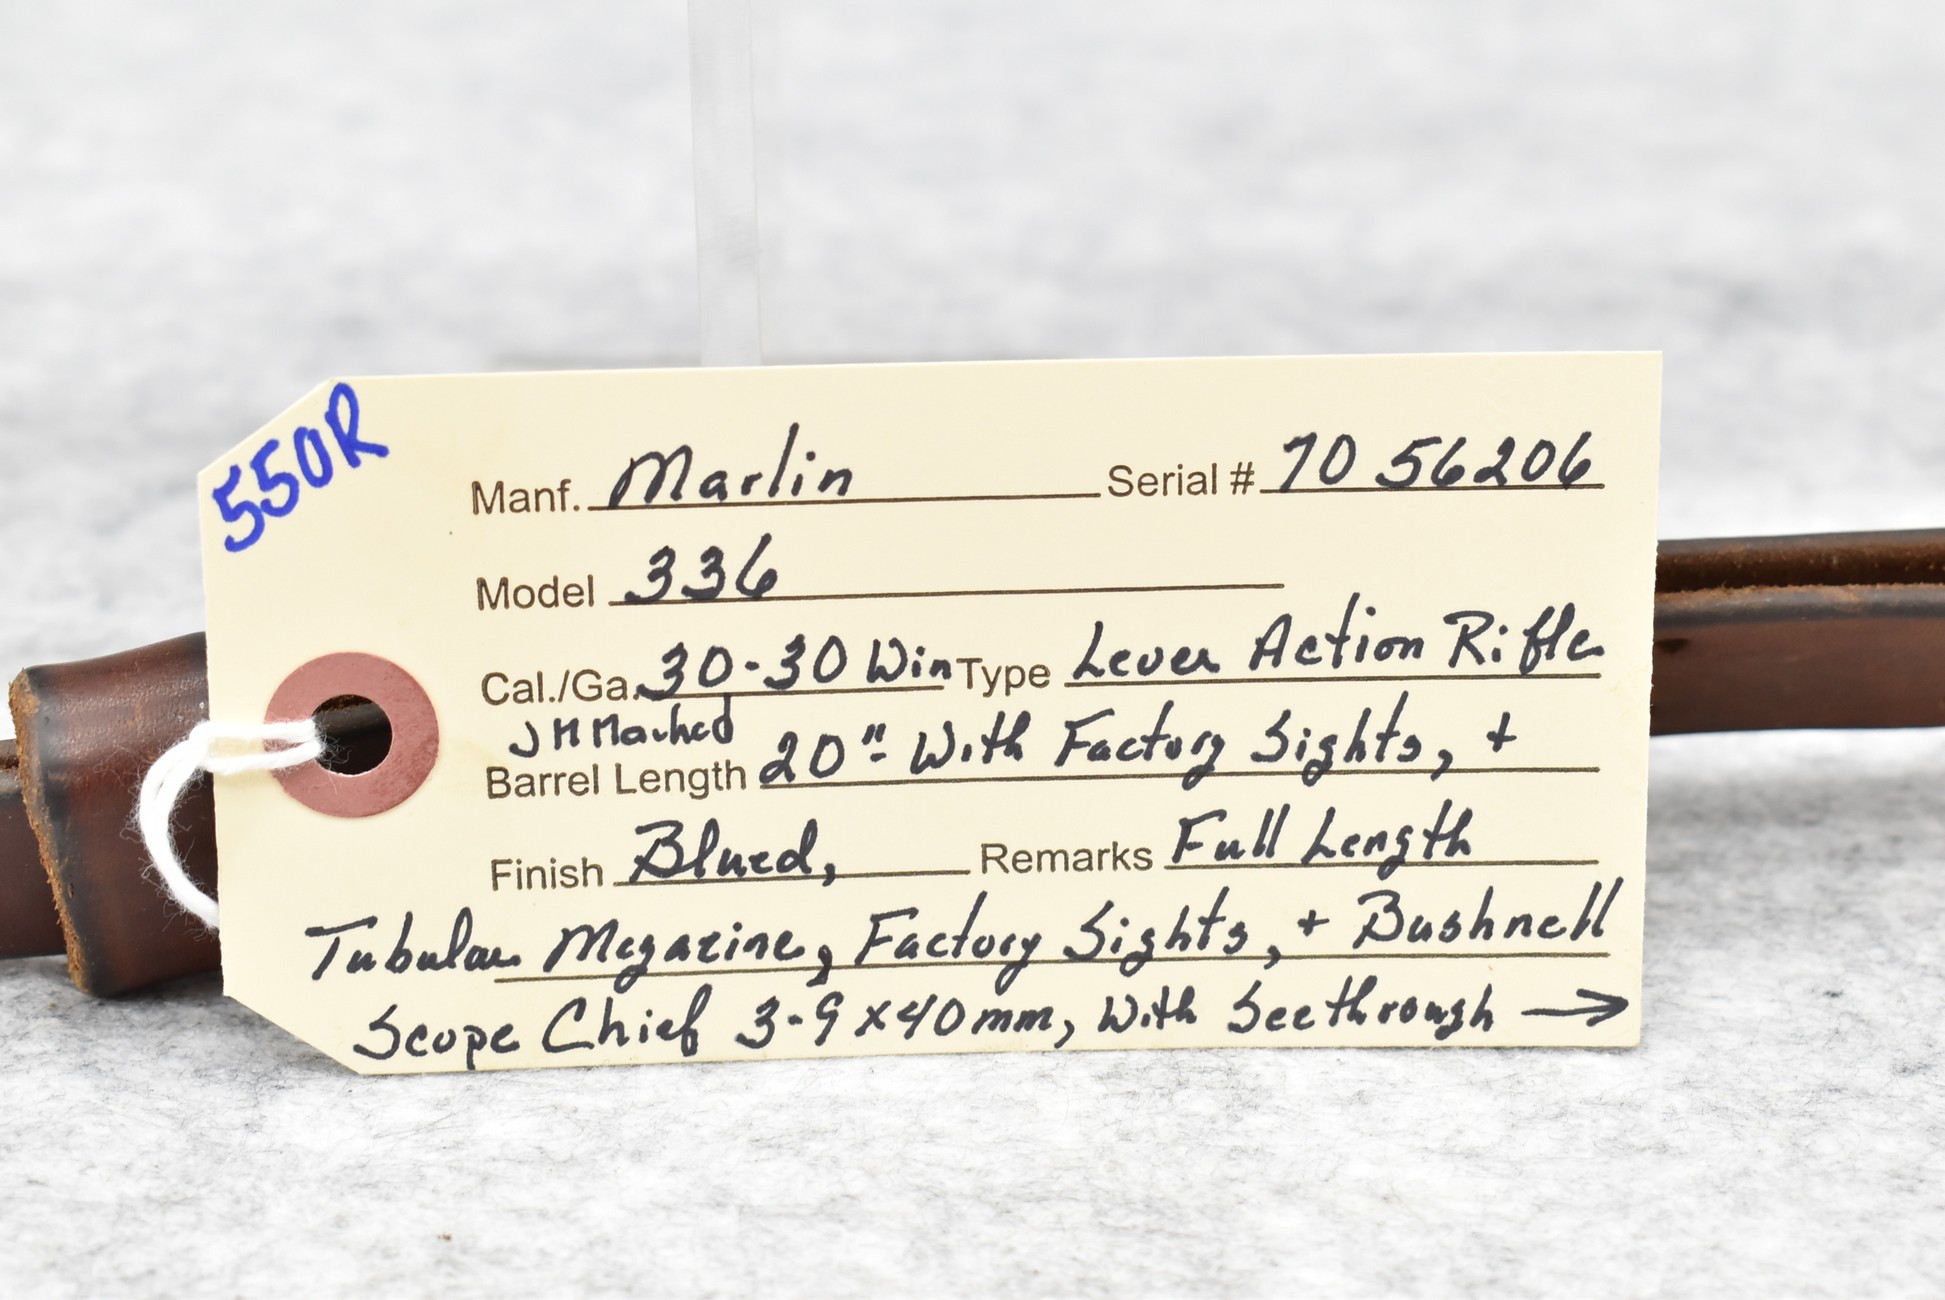 550R
Manf. Marlin Serial # 70 56206
Model 336
Cal./Ga. 30-30 Win Type Lever Action Rifle
JM Marked
Barrel Length 20" - With Factory Sights, +
Finish Blued, Remarks Full Length
Tubular Magazine, Factory Sights, + Bushnell
Scope Chief 3-9x40mm, With Seethrough →